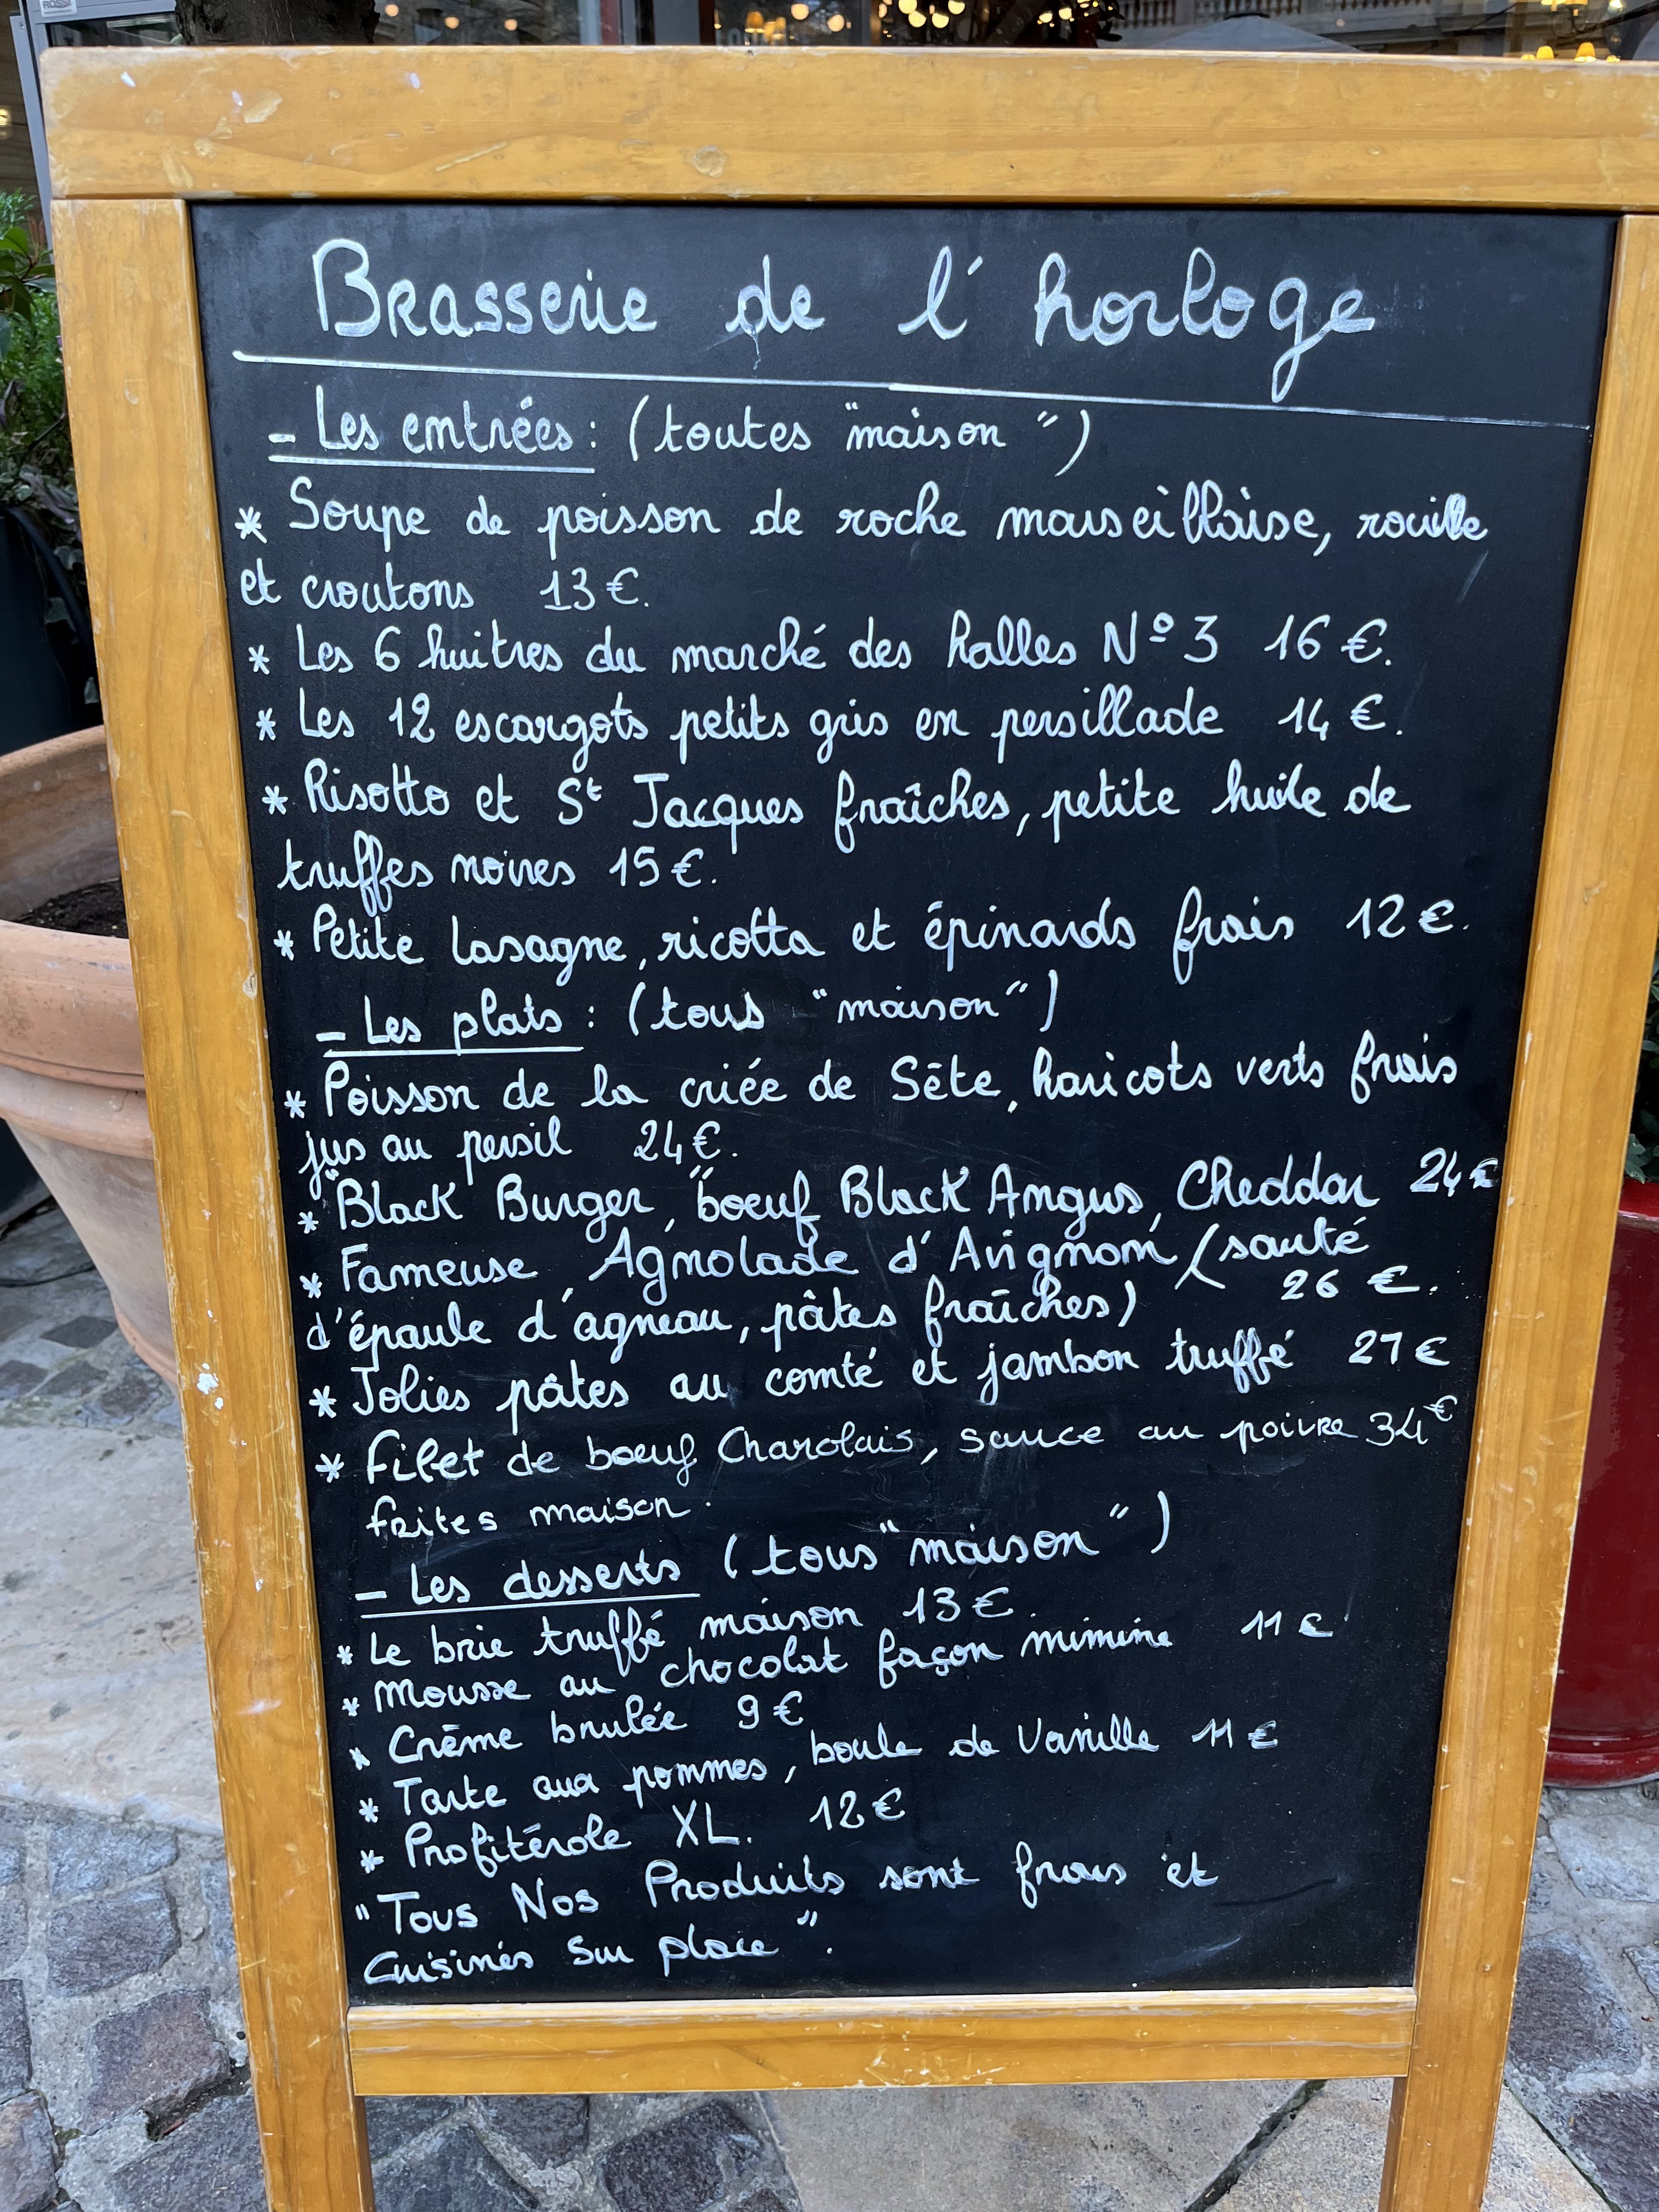 ROSSI
Brasserie de l'horloge
- Les entrées : (toutes "maison")
* Soupe de poisson de roche marseillaise, rouille
et croutons 13€.
* Les 6 huitres du marché des halles Nº3 16€.
* Les 12 escargots petits gris en persillade 14€.
* Risotto et St Jacques fraîches, petite huile de
truffes noires 15€.
* Petite lasagne, ricotta et épinards frais 12€.
- Les plats : (tous "maison")
* Poisson de la criée de Sète, haricots verts frais
jus au persil 24€.
* "Black Burger" boeuf Black Angus, Cheddar 24€
* Fameuse Agnolade d'Avignon (sauté
d'épaule d'agneau, pâtes fraîches) 26€.
* Jolies pâtes au comté et jambon truffé 27€
* Filet de boeuf Charolais, sauce au poivre 34€
frites maison.
- Les desserts (tous "maison")
* Le brie truffé maison 13€.
* Mousse au chocolat façon mimine 11€
* Crème brulée 9€
* Tarte aux pommes, boule de Vanille 11€
* Profitérole XL. 12€
"Tous Nos Produits sont frais et
Cuisinés Sur place".